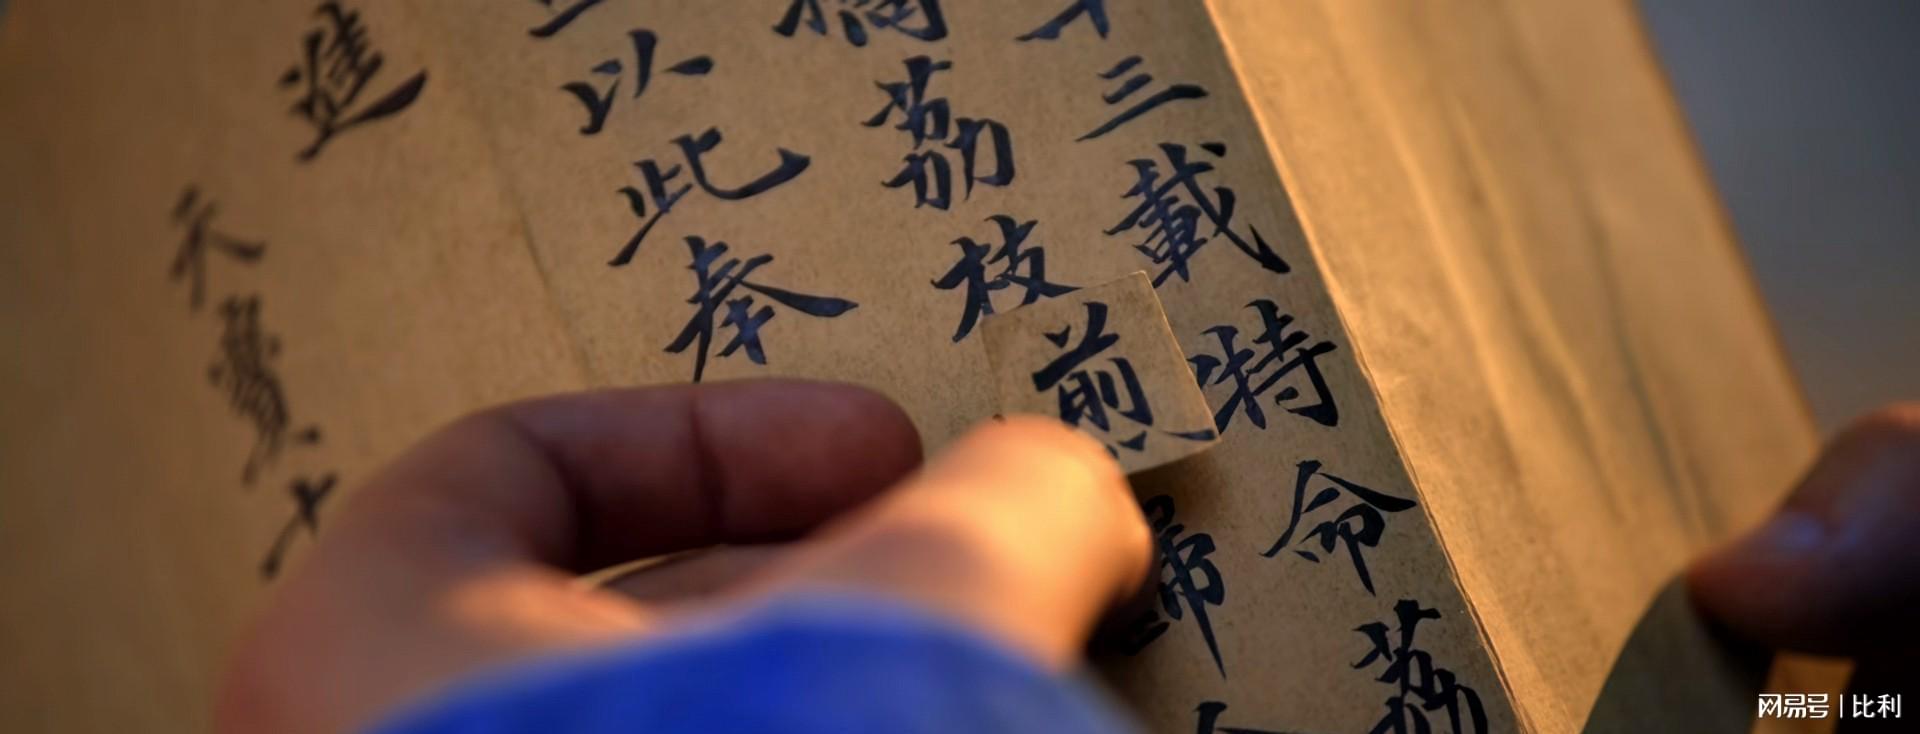 三載特命荔
荔枝煎歸
以此奉
進
天寶十
网易号 | 比利